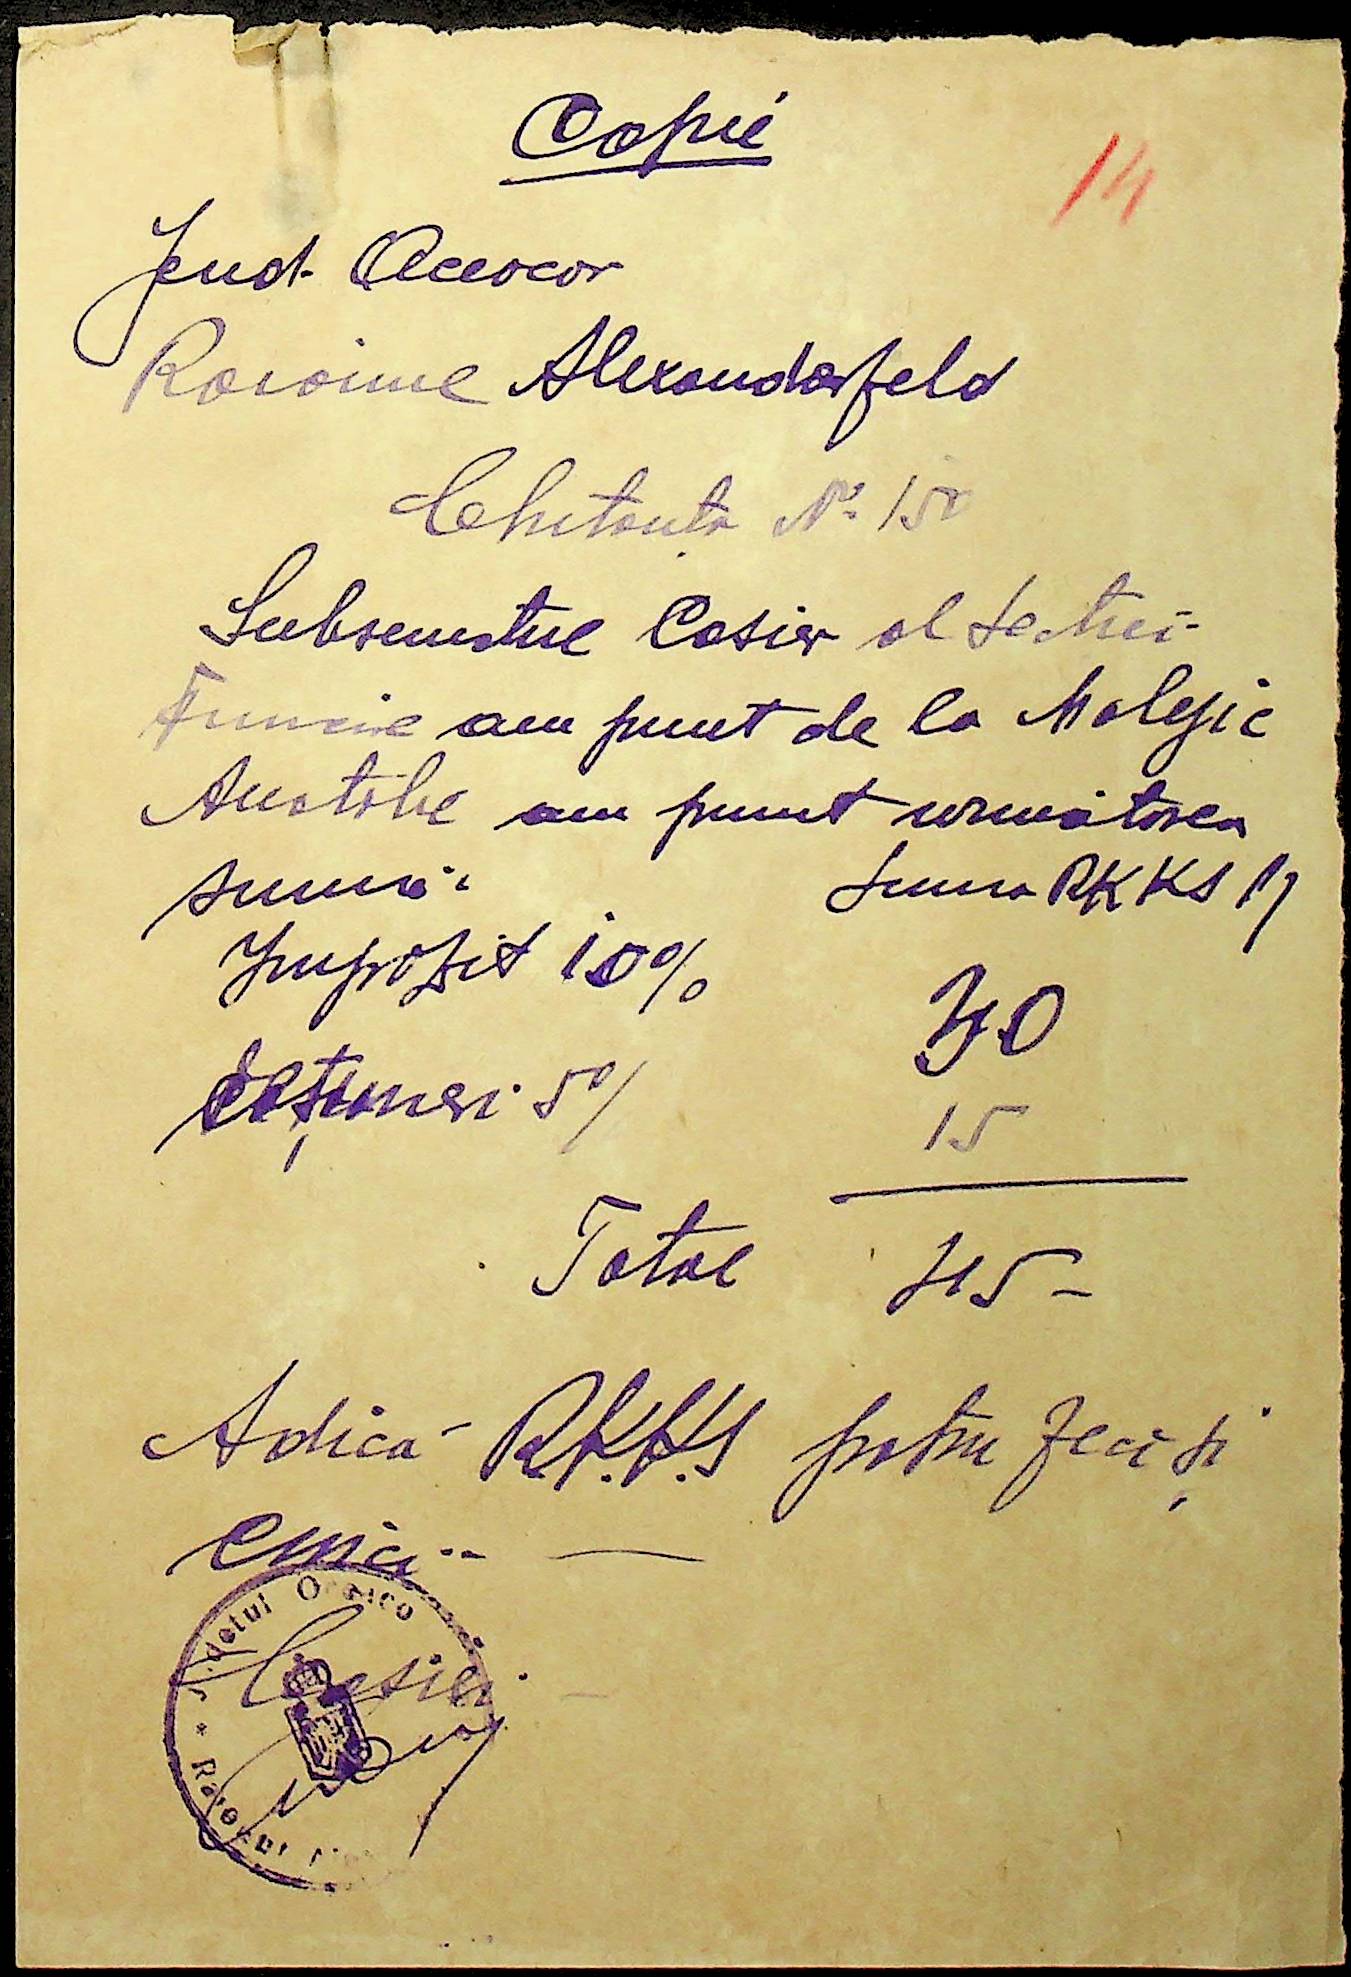 Copie
14
Jud. Oceacov
Raionul Alexanderfeld
Chitanța № 150
Subsemnatul Casier al Secției
Funciare am primit de la Malegic
Anatolie am primit următorea
sumă. Suma RKKS
Improfit 10% 30
5% 15
Total 45 -
Adică RKKS patru zeci și
cinci --
Casier.
Județul Oceaco
* Raionul